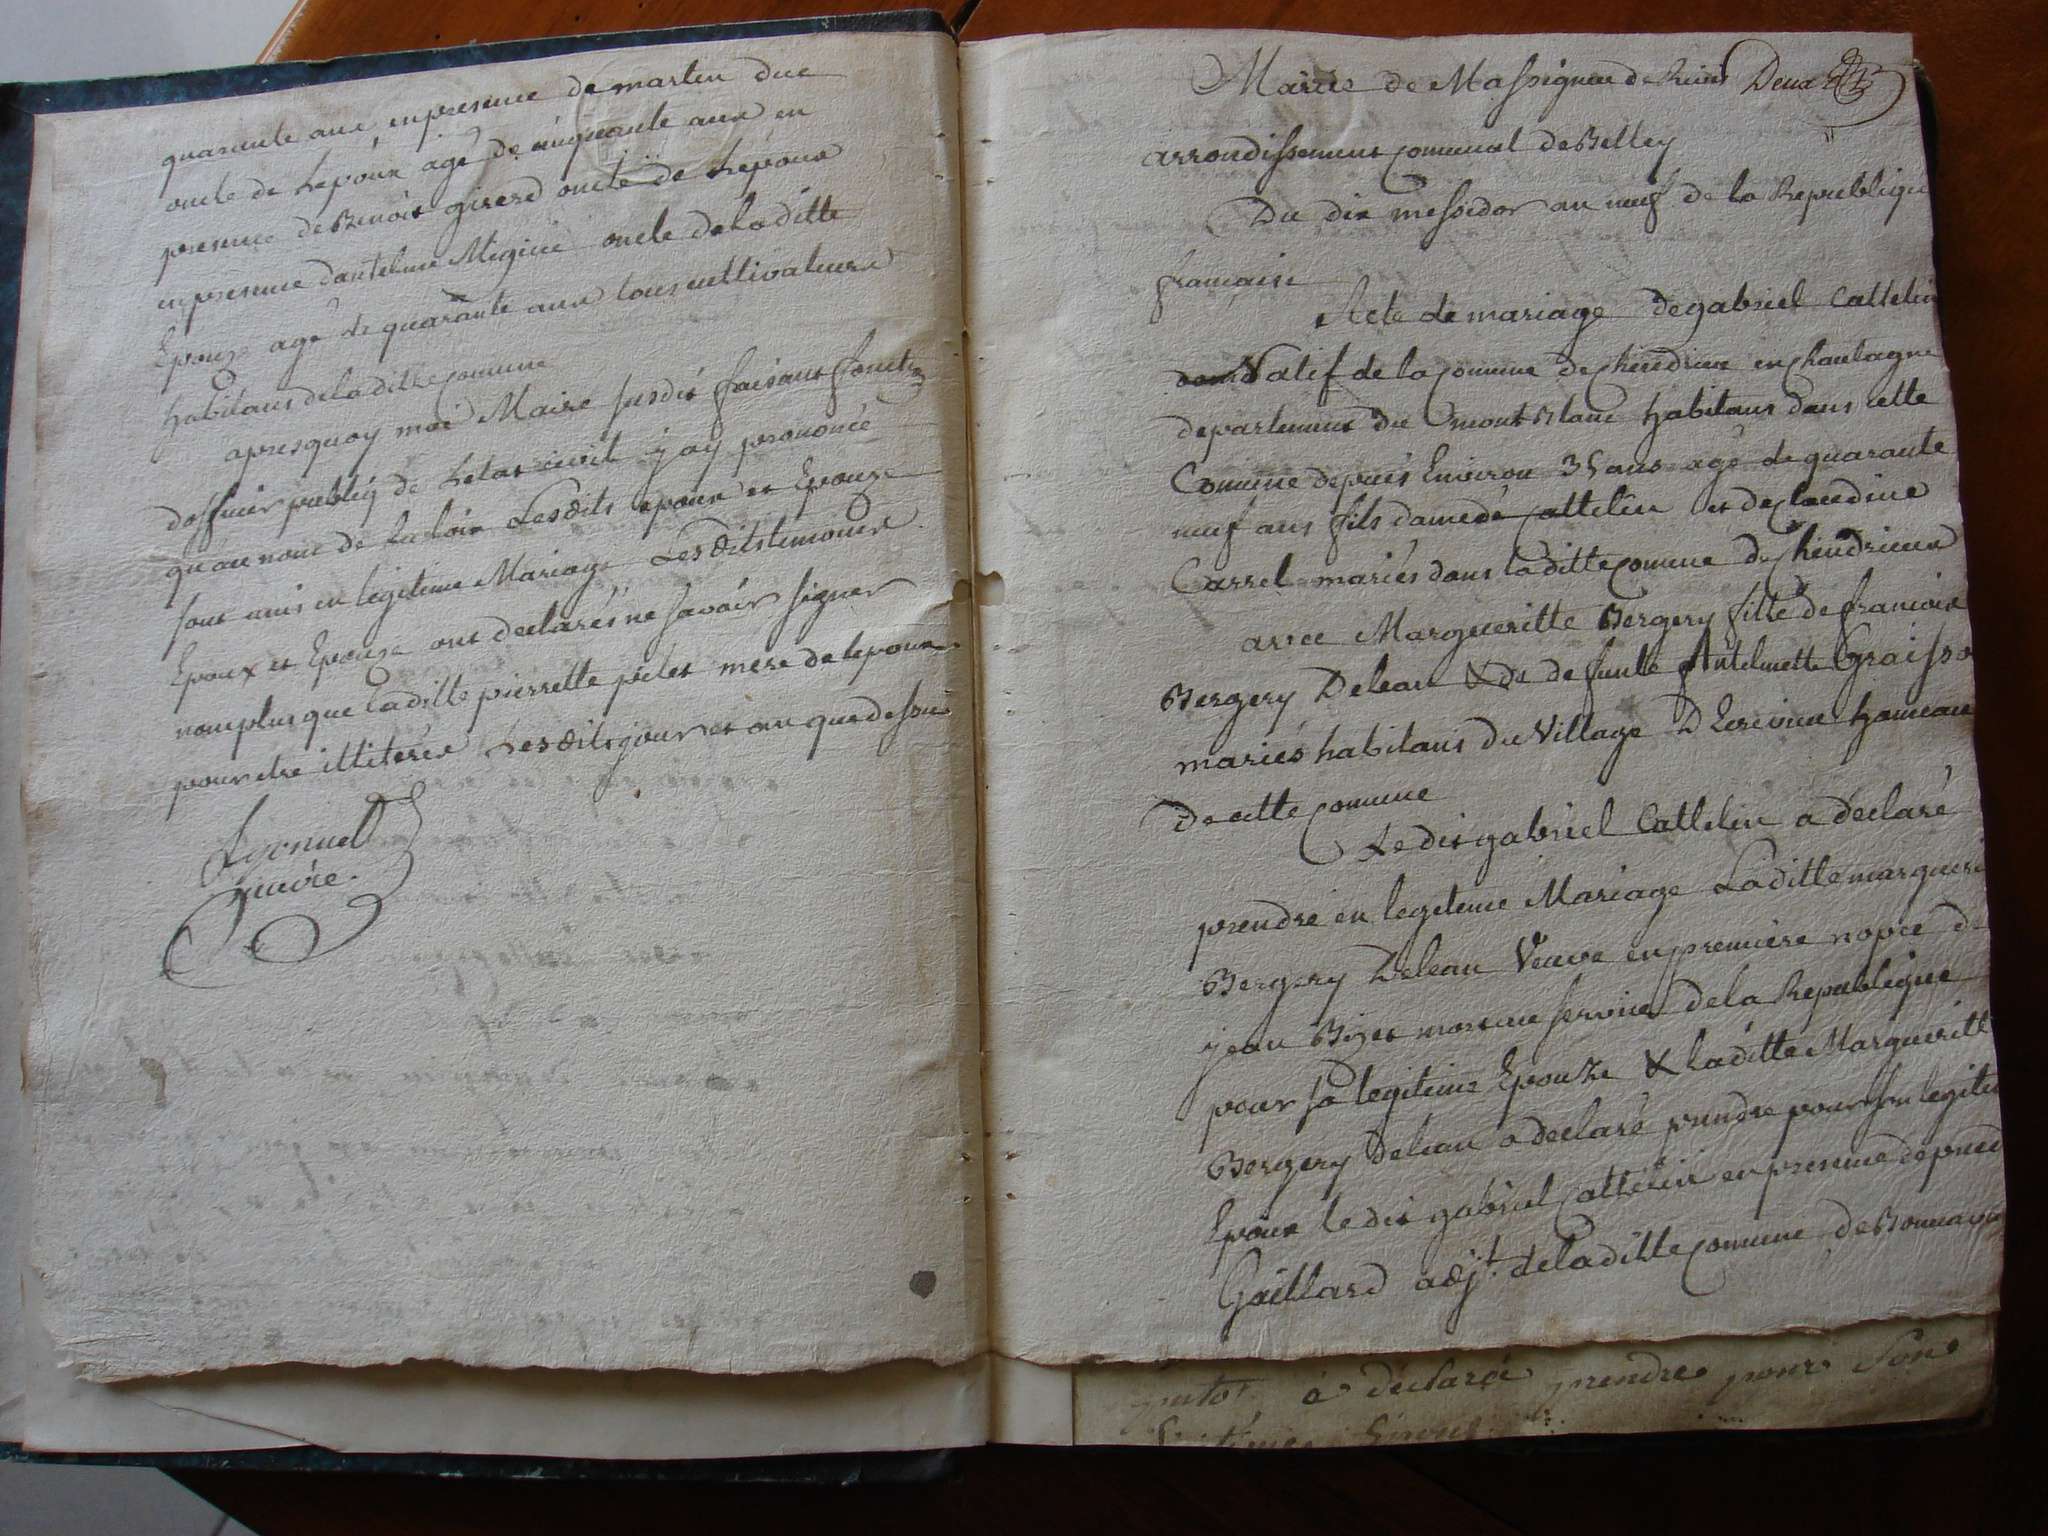 quarante ans, en presence de martin duc
oncle de Lepoux agé de cinquante ans en
presence de Benoit girerd oncle de Lepoux
en presence dantelme Mignin oncle de laditte
Epouze agé de quarante ans tous cultivateurs
habitans de laditte comune
apres quoy moi Maire susdit faisant fonct.on
dofficier publiq de Letat civil jay prononcé
quau nom de la loix Lesdits epoux et Epouze
sont unis en legitime Mariage Lesdits temoins
Epoux et Epouze ont declarés ne savoir signer
non plus que laditte pierrette pilet mere de lepoux
pour etre illiterés Lesdits jour et an que dessus
Lyonnet
maire.
Mairie de Massignieu de Rives Deux
arrondissement comunal de Belley
Du dix messidor an neuf de la Republique
francaise
Acte de mariage de gabriel Cattelin
Natif de la comune de Cheindrieu en Chautagne
departement du mont Blanc habitant dans cette
Comune depuis Environ 35 ans agé de quarante
neuf ans fils damedé Cattelin et de claudine
Carrel mariés dans laditte comune de Cheindrieux
avec Margueritte Bergery fille de francois
Bergery Deleau & de defunte Antelmette Graisso
mariés habitans du Village D Lorcieux hameau
de cette comune
Ledit gabriel Cattelin a déclaré
prendre en legiteme Mariage Laditte margueri
Bergery Deleau Veuve en premiere nopce de
jean Bizet mort au service de la Republique
pour sa legitime Epouze & Laditte Margueritt
Bergery deleau a declaré prendre pour son legiti
Epoux le dit gabriel Cattelin en presence de
Gaillard adj.t de laditte comune de Bonnav
a déclaré prendre pour son